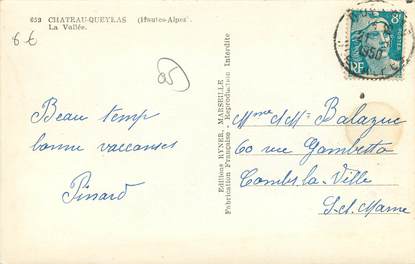 653 CHATEAU-QUEYRAS (Hautes-Alpes).
La Vallée.
6 €
05
Beau temp
bonne vaccanses
Pinard
Editions RYNER, MARSEILLE
Fabrication Française - Reproduction Interdite
8F
POSTES
RF
1950
Mme et Mr Balazuc
60 rue Gambetta
Combs la Ville
S. et. Marne